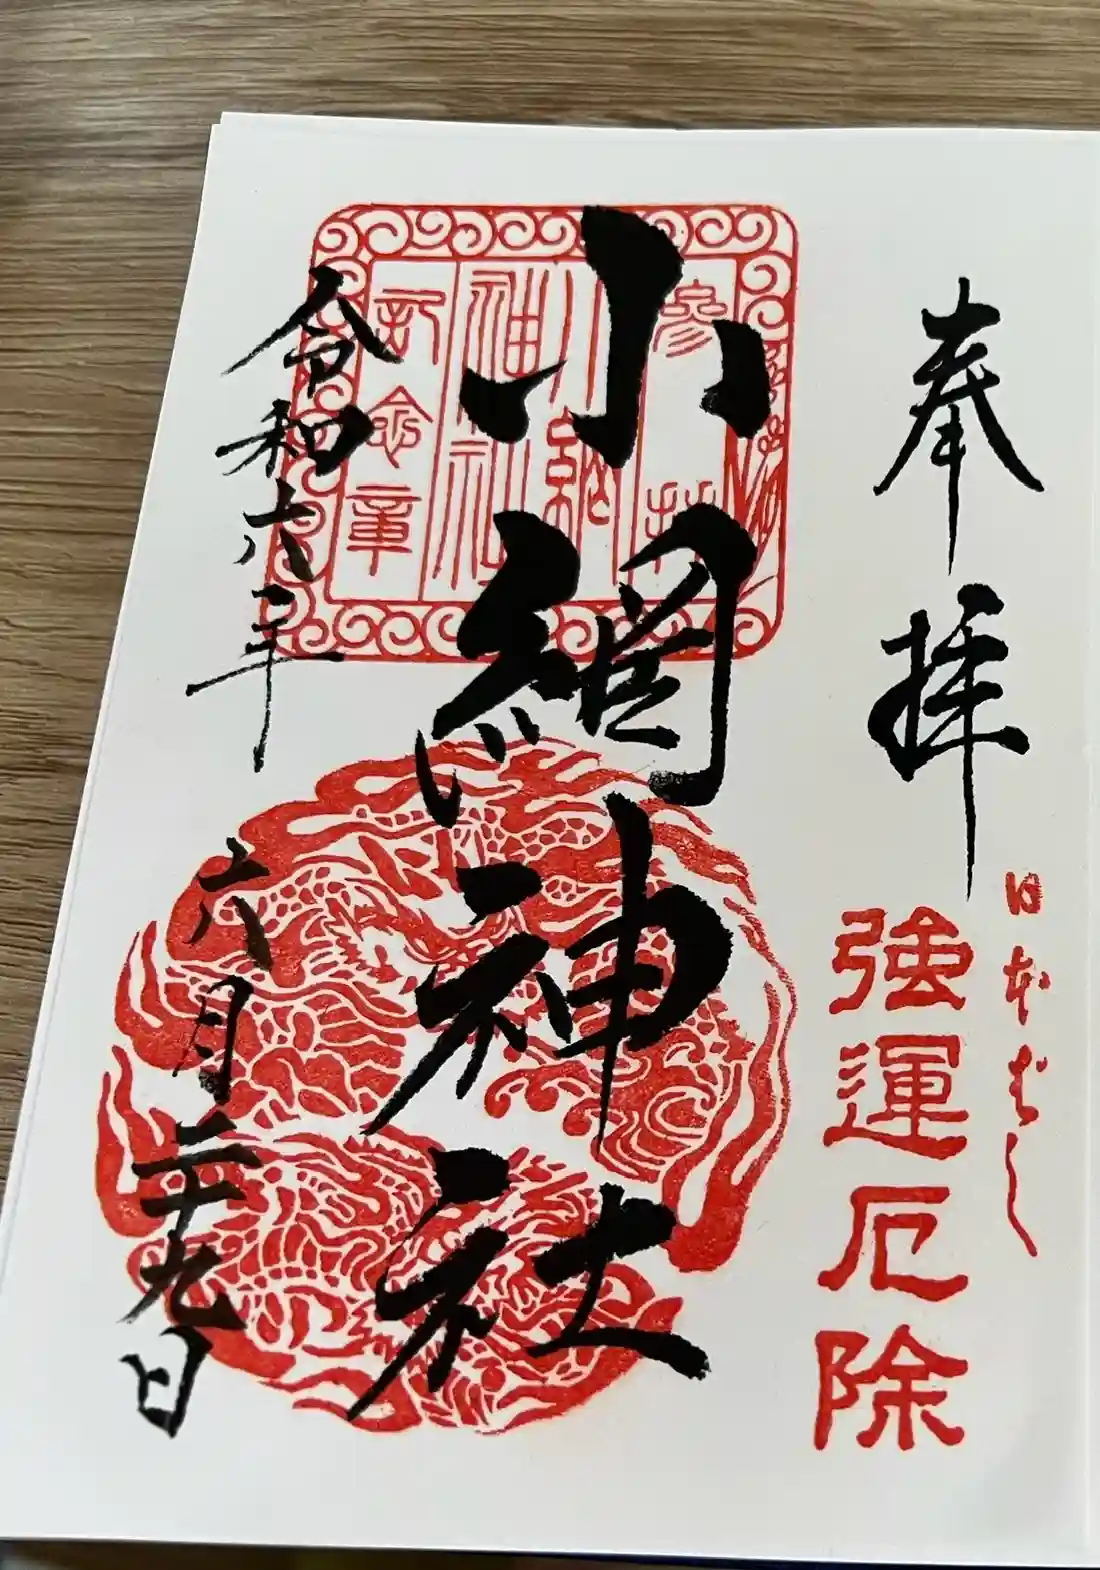 奉拝
日本ばし
強運厄除
小網神社
参拝
小網
神社
記念章
令和六年
六月二十九日